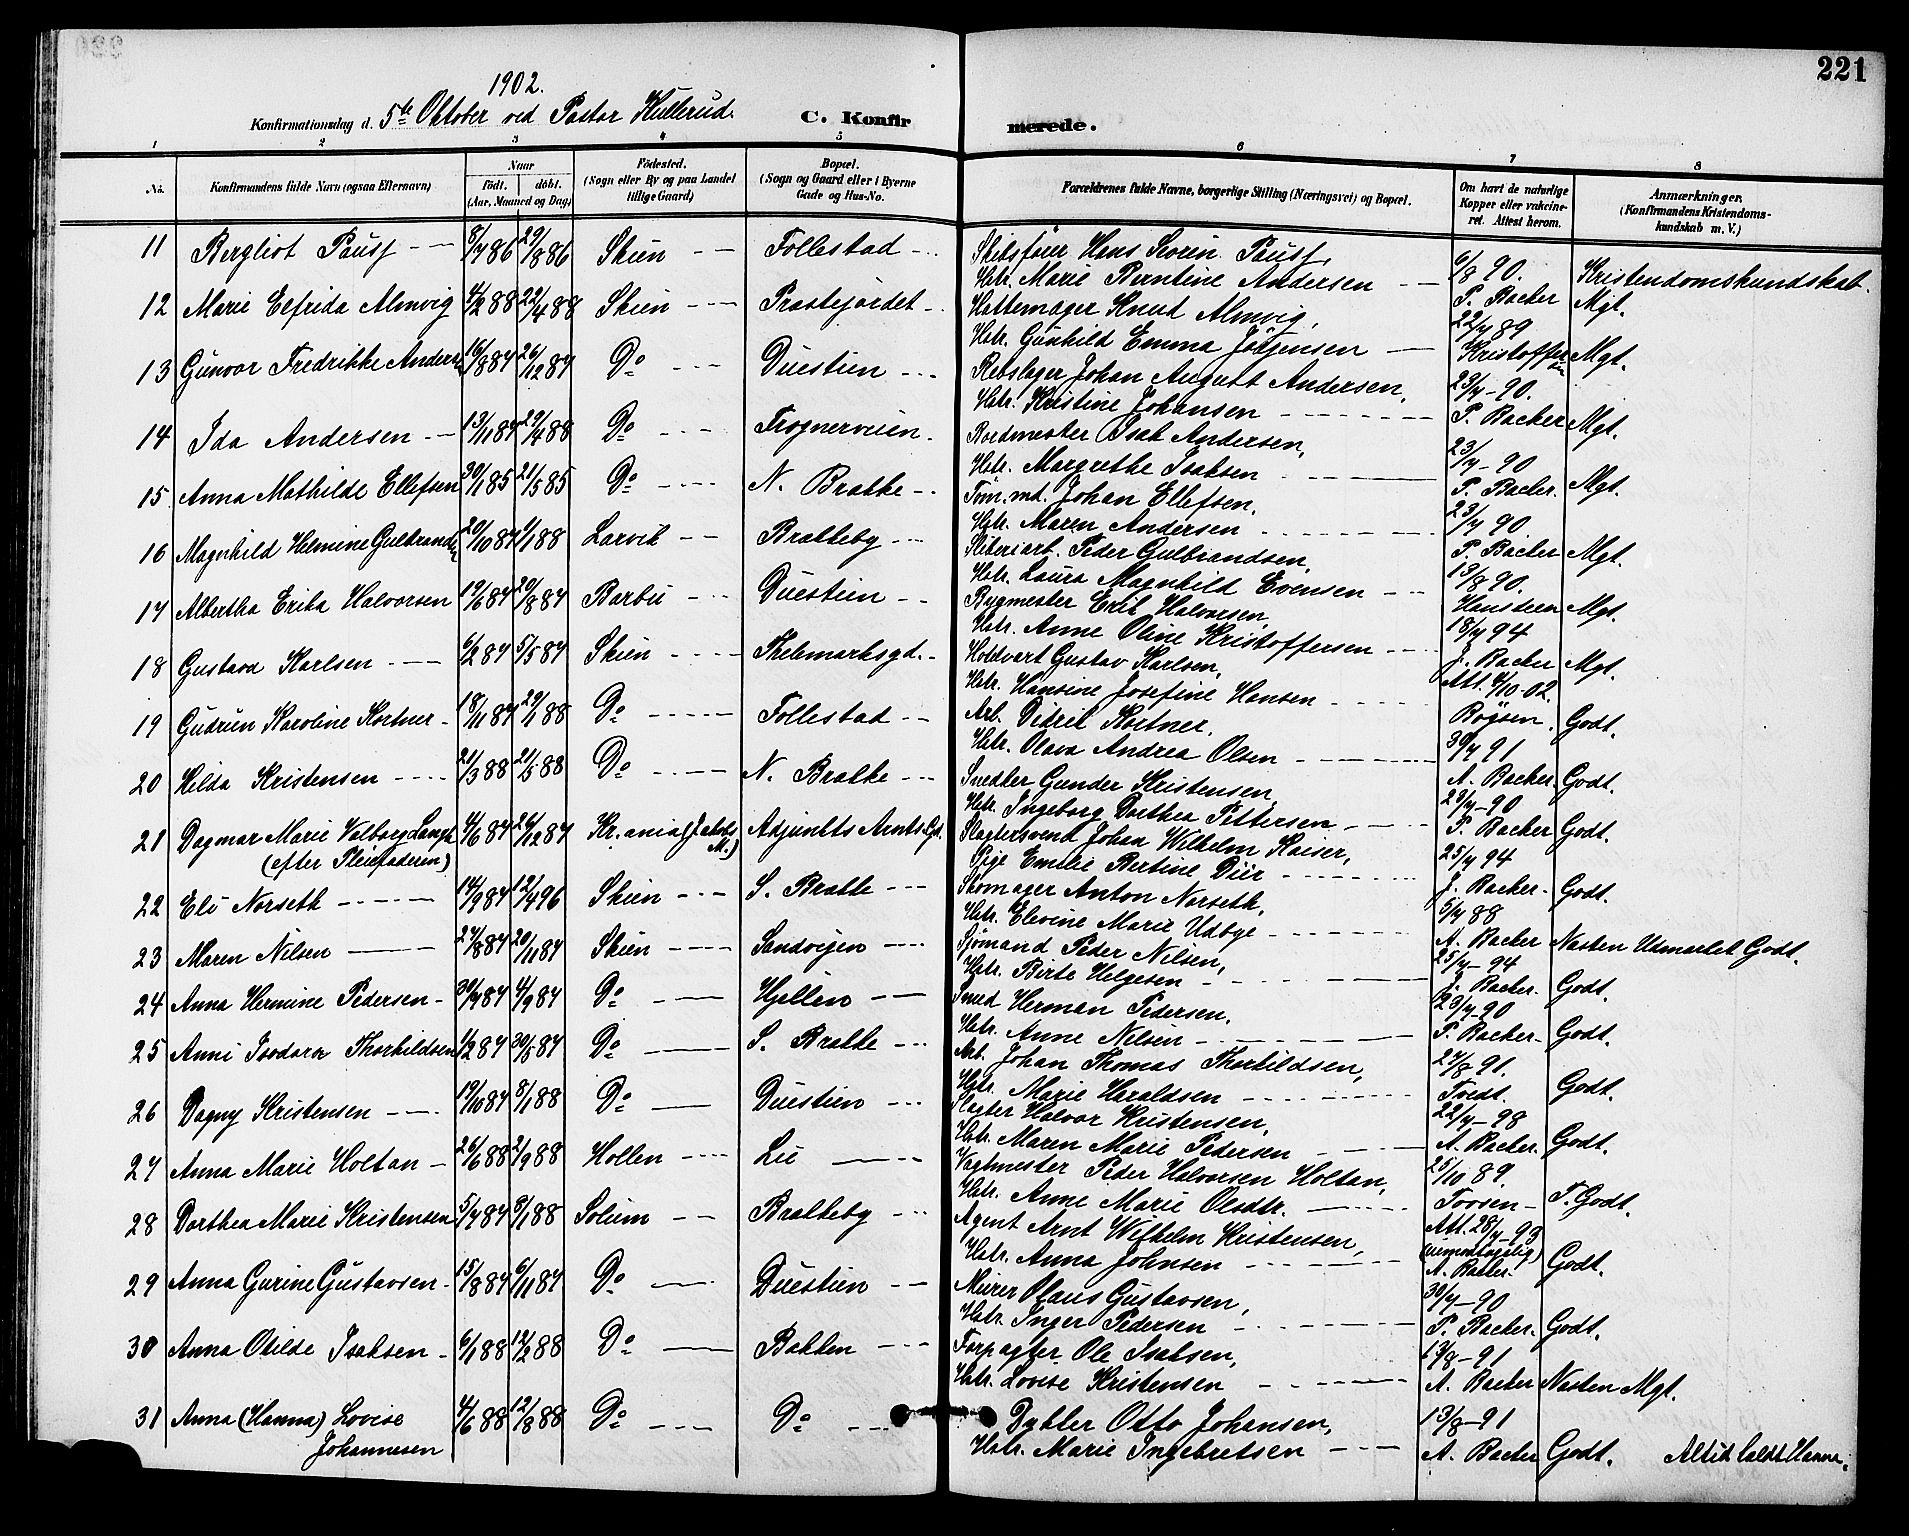 221
1902.
Konfirmationsdag d. 5te Oktober ved Pastor Kullerud. C. Konfirmerede.
1 2 3 4 5 6 7 8
No. Konfirmandens fulde Navn (ogsaa Efternavn) Naar født. døbt. (Aar, Maaned og Dag) Fødested. (Sogn eller By og paa Landet tillige Gaard) Bopæl. (Sogn og Gaard eller i Byerne Gade og Hus-No. Forældrenes fulde Navne, borgerlige Stilling (Næringsvei) og Bopæl. Om havt de naturlige Kopper eller vakcineret. Attest herom. Anmærkninger. (Konfirmandens Kristendomskundskab m. V.)
11 Bergliot Pausf 8/7 86 29/8 86 Skien Follestad Skibsfører Hans Severin Pausf, 6/8 90. Kristendomskundskab.
Hstr. Marie Berntine Andersen P. Backer Mgt.
12 Marie Elfrida Almvig 4/2 88 22/4 88 Skien Prestejordet Hattemager Knud Almvig, 22/7 89
Hstr. Gunhild Emma Jörjensen Kristoffersen Mgt.
13 Gunvor Fredrikke Anders 16/8 87 26/12 87 Do Duestien Rebslager Johan August Andersen, 23/7-90.
Hstr. Kristine Johansen P. Backer Mgt.
14 Ida Andersen 13/11 87 29/4 88 Do Frognerveien Bordmester Isak Andersen, 23/7-90
Hstr. Margrethe Isaksen P. Backer. Mgt.
15 Anna Mathilde Ellefsen 30/1 85 21/5 85 Do N. Bratke Töm.md. Johan Ellefsen, 23/7 90.
Hstr. Maren Andersen P. Backer Mgt.
16 Magnhild Helmine Gulbrands 20/10 87 1/1 88 Larvik Bratteby Sliberiarb. Peder Gulbrandsen, 13/8 90.
Hstr. Laura Magnhild Evensen Hansteen Mgt.
17 Albertha Erika Halvorsen 19/6 87 20/8 87 Barbu Duestien Bygmester Erik Halvorsen, 18/7 94
Hstr. Anne Oline Kristoffersen J. Backer Mgt.
18 Gustava Karlsen 6/2 87 5/5 87 Skien Thelemarksgd. Holdvert Gustav Karlsen, Att. 4/10-02.
Hstr. Hansine Josefine Hansen Boysen. Godt.
19 Gudrun Karoline Kortner 18/11 87 29/1 88 Do Follestad Arb. Didrik Kortner, 30/7 91
Hstr. Olava Andrea Olsen A. Backer. Godt.
20 Hilda Kristensen 21/3 88 21/5 88 Do N. Bratke Snedker Gunder Kristensen, 29/7-90
Hstr. Ingeborg Dorthea Pettersen P. Backer Godt.
21 Dagmar Marie Valborg Lange 4/6 87 26/12 87 Kr.ania (Jakobs M.) Adjunkts Arntsgd. Slagtersvend Johan Wilhelm Kaiser, 25/7 94
(efter Pleiefaderen) Pige Emelie Bertine Diir J. Backer. Godt.
22 Eli Norseth 14/9 87 12/4 96 Skien S. Bratke Skomager Anton Norseth, 5/7 88
Hstr. Elevine Marie Udbye A. Backer Næsten Udmærket Godt.
23 Maren Nilsen 27/8 87 20/11 87 Skien Sandvigen Sjömand Peder Nilsen, 25/7-94
Hstr. Birte Helgesen J. Backer. Godt.
24 Anna Hermine Pedersen 30/7 87 4/9 87 Do Hjellen Smed Herman Pedersen, 23/7-90
Hstr. Anne Nilsen P. Backer. Godt.
25 Anni Isodora Thorkildsen 1/2 87 30/5 87 Do S. Bratke Arb. Johan Thomas Thorkildsen, 27/8 91.
Hstr. Marie Haraldsen Tvedt. Godt.
26 Dagny Kristensen 19/10 87 8/1 88 Do Duestien Slagter Halvor Kristensen, 22/7-98
Hstr. Maren Marie Pedersen A. Backer. Godt.
27 Anna Marie Holtan 26/6 88 2/9 88 Hollen Lie Vagtmester Peder Halvorsen Holtan, 25/10 89.
Hstr. Anne Marie Olsdtr. Tvosen T. Godt.
28 Dorthea Marie Kristensen 5/7 87 8/1 88 Solum Bratteby Agent Arnt Wilhelm Kristensen, Att. 28/7-93
(uimodtagelig)
Hstr. Anna Johnsen A. Backer. Godt.
29 Anna Gurine Gustavsen 15/8 87 6/11 87 Do Duestien Murer Olaus Gustavsen, 30/7-90
Hstr. Inger Pedersen P. Backer. Godt.
30 Anna Otilde Isaksen 6/1 88 12/2 88 Do Bakken Forpagter Ole Isaksen, 13/8-91
Hstr. Lovise Kristensen A. Backer Næsten Mgt.
31 Anna (Hanna) Lovise 4/6 88 12/8 88 Do Do Dykker Otto Johansen, 13/8-91
Johannesen Hstr. Marie Ingebretsen A. Backer Godt. Altid kaldt Hanna.